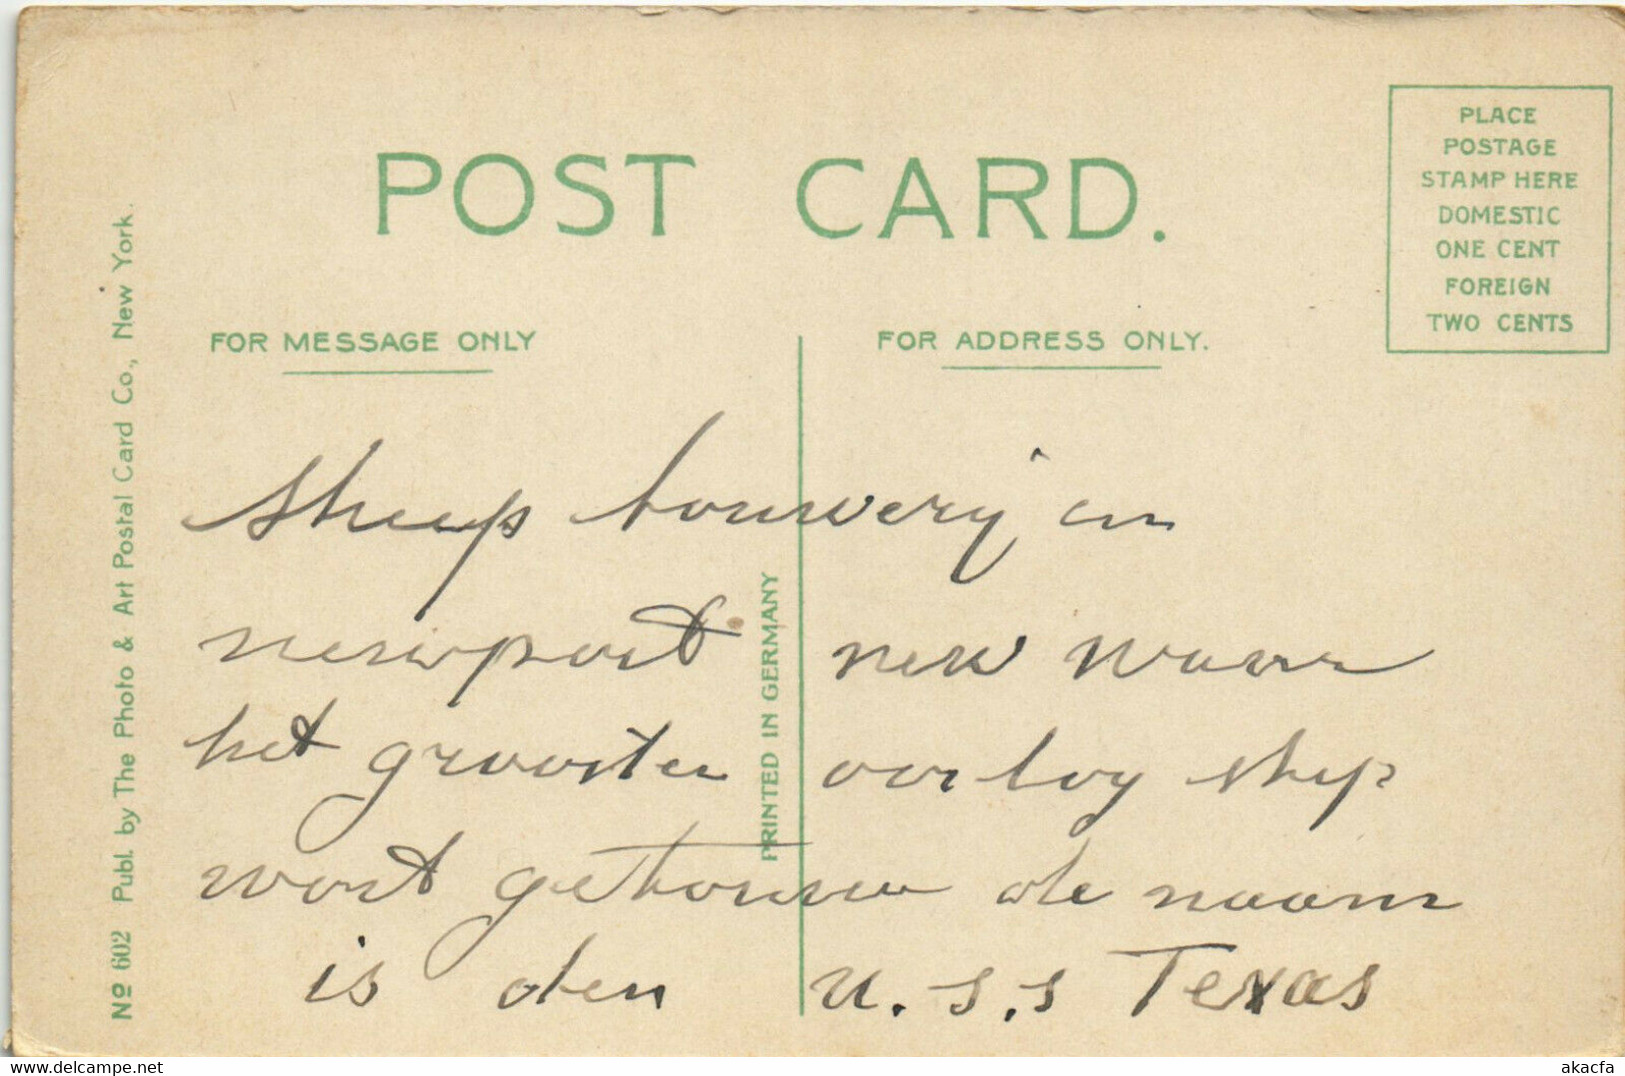 POST CARD.
PLACE
POSTAGE
STAMP HERE
DOMESTIC
ONE CENT
FOREIGN
TWO CENTS
FOR MESSAGE ONLY
FOR ADDRESS ONLY.
No 602 Publ. by The Photo & Art Postal Card Co., New York.
PRINTED IN GERMANY
Sheep bouwery in
newport new waar
het grooste oorlog shep
wort gebouw de naam
is den U.S.S Texas
delcampe.net
akacfa